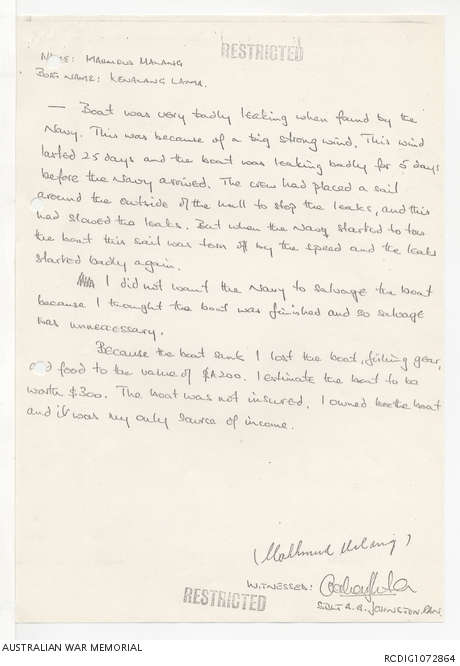 RESTRICTED
NAME: MAHMOUD MALANG
BOAT NAME: KENALANG LAMA.
— Boat was very badly leaking when found by the
Navy. This was because of a big strong wind. This wind
lasted 25 days and the boat was leaking badly for 5 days
before the Navy arrived. The crew had placed a sail
around the outside of the hull to stop the leaks, and this
had slowed the leaks. But when the Navy started to tow
the boat this sail was torn off by the speed and the leaks
started badly again.
I did not want the Navy to salvage the boat
because I thought the boat was finished and so salvage
was unneccessary.
Because the boat sank I lost the boat, fishing gear,
and food to the value of $A200. I estimate the boat to be
worth $300. The boat was not insured. I owned the boat
and it was my only source of income.
WITNESSED:
RESTRICTED
JOHNSTON, RAN.
AUSTRALIAN WAR MEMORIAL
RCDIG1072864